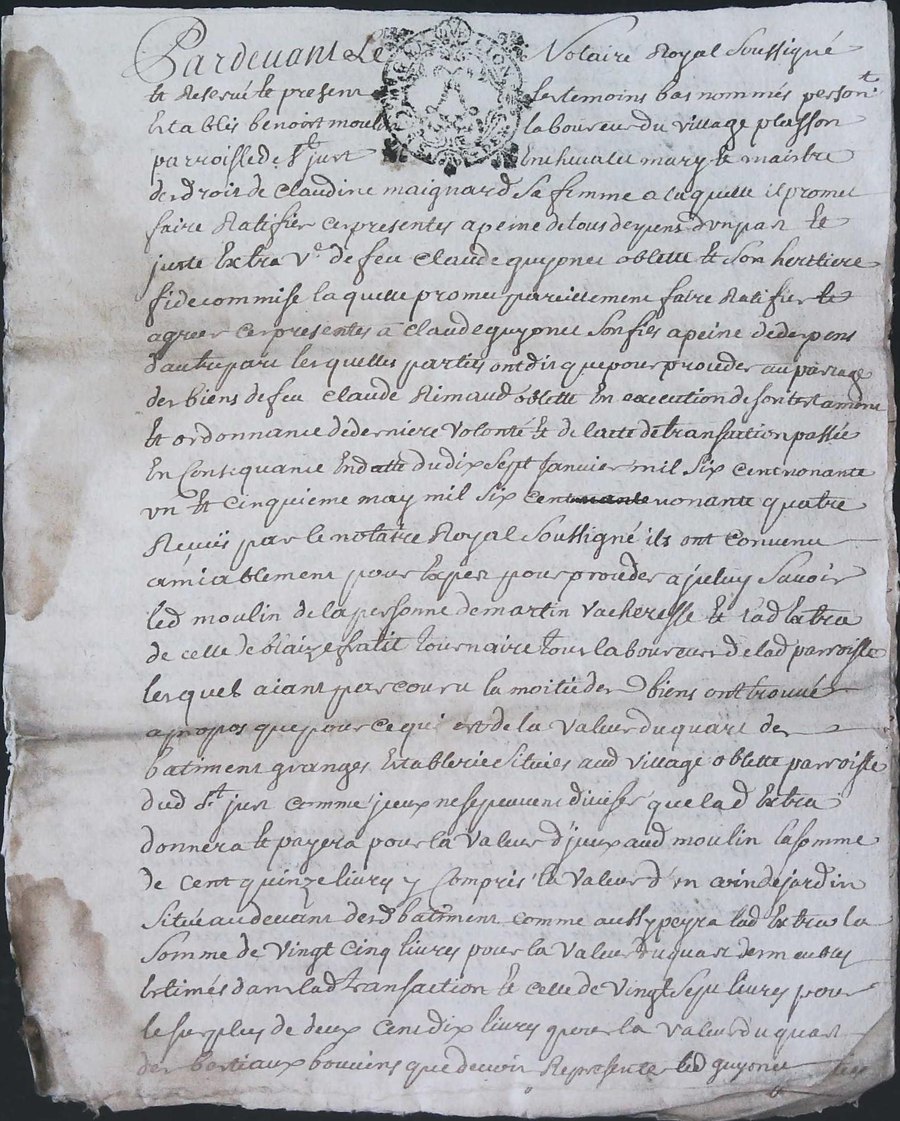 Pardevant Le Notaire Royal Soussigné
et Reservé et present les temoins bas nommés person.t
Establis benoist moulin laboureur du village plasson
parroisse de St just En sa qualité mary et maistre
de droit de Claudine maignard sa femme a laquelle il promet
faire Ratifier ces presentes a peine de tous depens d'un part et
juste Extra V.e de feu Claude guyonet oblette et son heritiere
fidecommise laquelle promet pareillement faire Ratifier et
agreer ces presentes a Claude guyonet son fils a peine de depens
d'autre part lesquelles parties ont dit que pour proceder au partage
des biens de feu Claude Rimaud oblette En execution de son testament
et ordonnance de derniere volonté et de lacte de transaction passée
En Consequance En datte du dix sept Janvier mil six cent nonante
un et cinquieme may mil six cent nonante quatre
Reçûs par le notaire Royal Soussigné ils ont convenu
amiablement pour proceder a iceluy Savoir
led moulin de la personne de martin vacheresse et lad Extra
de celle de blaize fratit tournaire tous laboureurs de lad parroisse
lesquels aiant parcouru la moitié des d biens ont trouvé
apropos que pour ce qui est de la valeur du quart des
batiment granges Establerie Situées aud village oblette parroisse
dud St just comme jceux ne se peuvent diviser que lad Extra
donnera et payera pour la valeur d'jceux aud moulin la somme
de cent quinze livres y compris la valeur d'un coin de jardin
Situé au devant desd batiment comme aussy peyra lad Extra la
Somme de vingt cinq livres pour la valeur du quart des meubles
Estimés dans lad transaction et celle de vingt sept livres pour
le surplus de deux cent dix livres pour la valeur du quart
des bestiaux bouviens que devoir Representer led guyonet